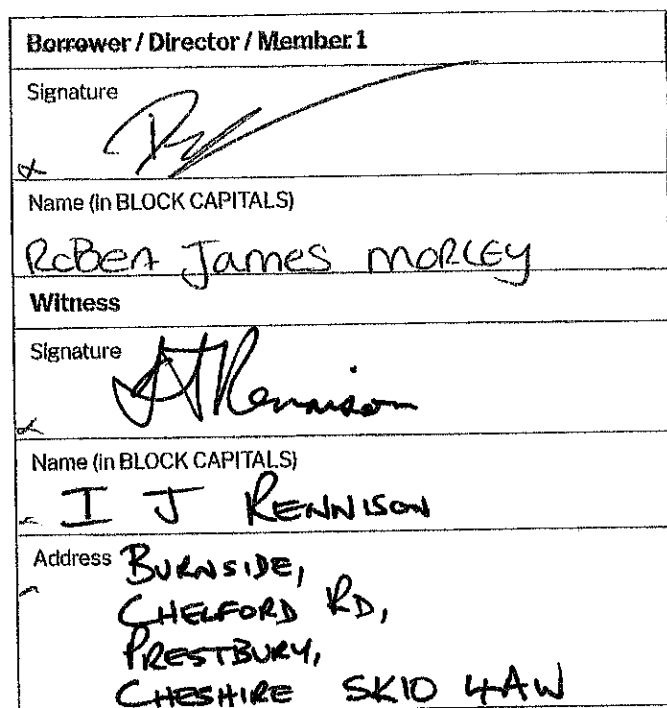 Borrower / Director / Member 1
Signature
Name (in BLOCK CAPITALS)
ROBERT James MORLEY
Witness
Signature
IJ Rennison
Name (in BLOCK CAPITALS)
I J RENNISON
Address BURNSIDE,
CHELFORD RD,
PRESTBURY,
CHESHIRE SK10 4AW